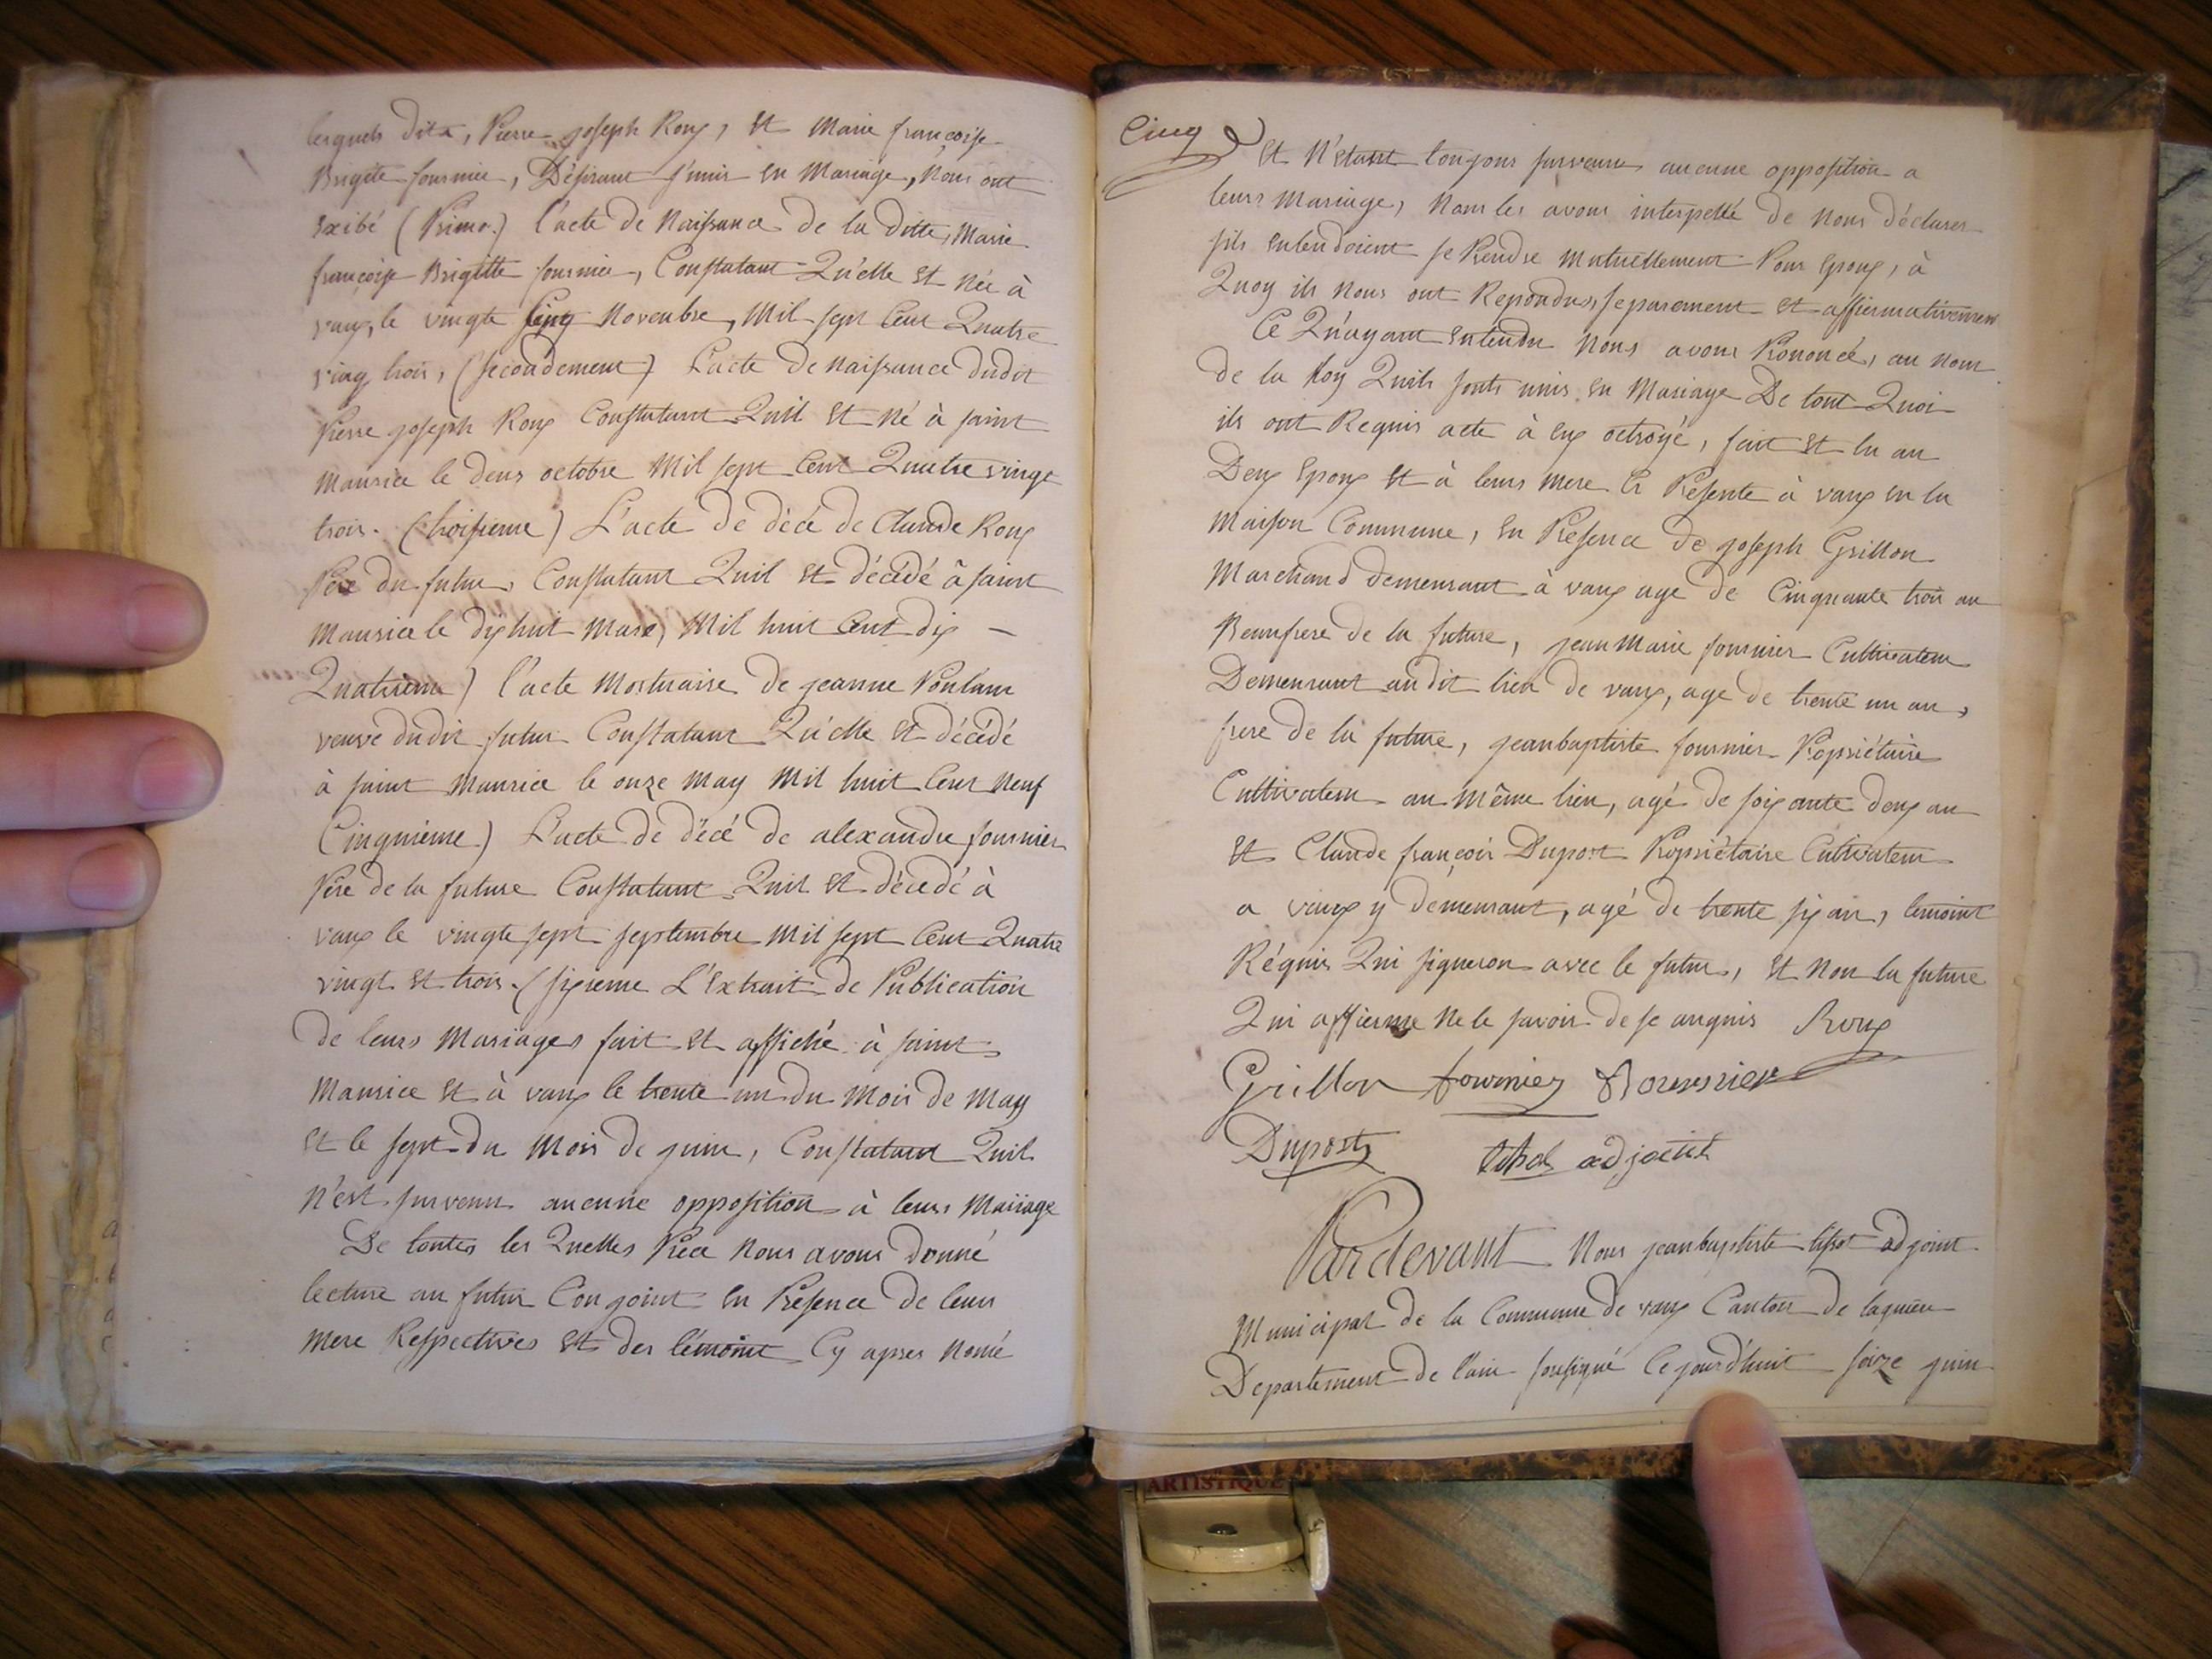 lesquels dita, Pierre joseph Roux, et Marie françoise
Brigite fournier, Désirant s'unir en Mariage, Nous ont
Exibé (Primo.) l'acte de Naissance de la ditte, Marie
françoise Brigitte fournier, Constatant Qu'elle est Née à
vaux, le vingte Novembre, Mil sept Cent Quatre
ving trois, (secondement) L'acte de Naissance dudit
Pierre joseph Roux Constatant Quil est Né à saint
Maurice le deux octobre Mil sept Cent Quatre vingt
trois. (troisieme) L'acte de décé de Claude Roux
Père du futur, Constatant Quil est décédé à saint
Maurice le dix huit Mars, Mil huit Cent dix —
Quatrieme) l'acte Mortuaire de jeanne
veuve dudit futur Constatant Qu'elle est décédé
à saint Maurice le onze May Mil huit Cent Neuf
Cinquieme) L'acte de décé de alexandre fournier
Père de la future Constatant Quil est décedé à
vaux le vingt sept septembre Mil sept Cent Quatre
vingt et trois. (sixieme L'Extrait de Publication
de leurs Mariages fait et affiché à saint
Maurice et à vaux le trente un du Mois de May
et le sept du Mois de juin, Constatant Quil
N'est survenu aucune opposition à leurs Mariage
De toutes les Quelles Piece Nous avons Donné
lecture au futur Conjoint en Présence de leur
Mere Respectives et des témoint Cy apres Nomé
Cinq
et N'etant toujour survenue aucune opposition a
leurs Mariage, Nous les avons interpellé de Nous déclarer
sils entendoient se Prendre Mutuellement Pour Epoux, à
Quoy ils Nous ont Repondus, separement et affiermativement
Ce Qu'ayant Entendu Nous avons Prononcé, au Nom
de la Loy Quils sonts unis en Mariage De tout Quoi
ils ont Requis acte à eux octroyé, fait et lu au
Deux Epoux et à leurs Mere Cy Présente à vaux en la
Maison Commune, en Présence de joseph Grillon
Marchand demeurant à vaux age de Cinquante trois an
Beaufrere de la future, jean Marie fournier Cultivateur
Demeurant audit lieu de vaux, age de trente un an,
frere de la future, jeanbaptiste fournier Propriétaire
Cultivateur au Même lieu, agé de soixante deux an
et Claude françois Duport Propriétaire Cultivateur
a vaux y demeurant, agé de trente six an, temoint
Réquis Qui signeron avec le futur, et Non la future
Qui affierme Ne le savoir de ce anquis Roux
Grillon fournier fournier
Duport tisot adjoint
Pardevant Nous jeanbaptiste tisot adjoint
Municipal de la Commune de vaux Canton de lagnieu
Departement de l'ain sousigné Ce jourd'huit seize juin
ARTISTIQUE